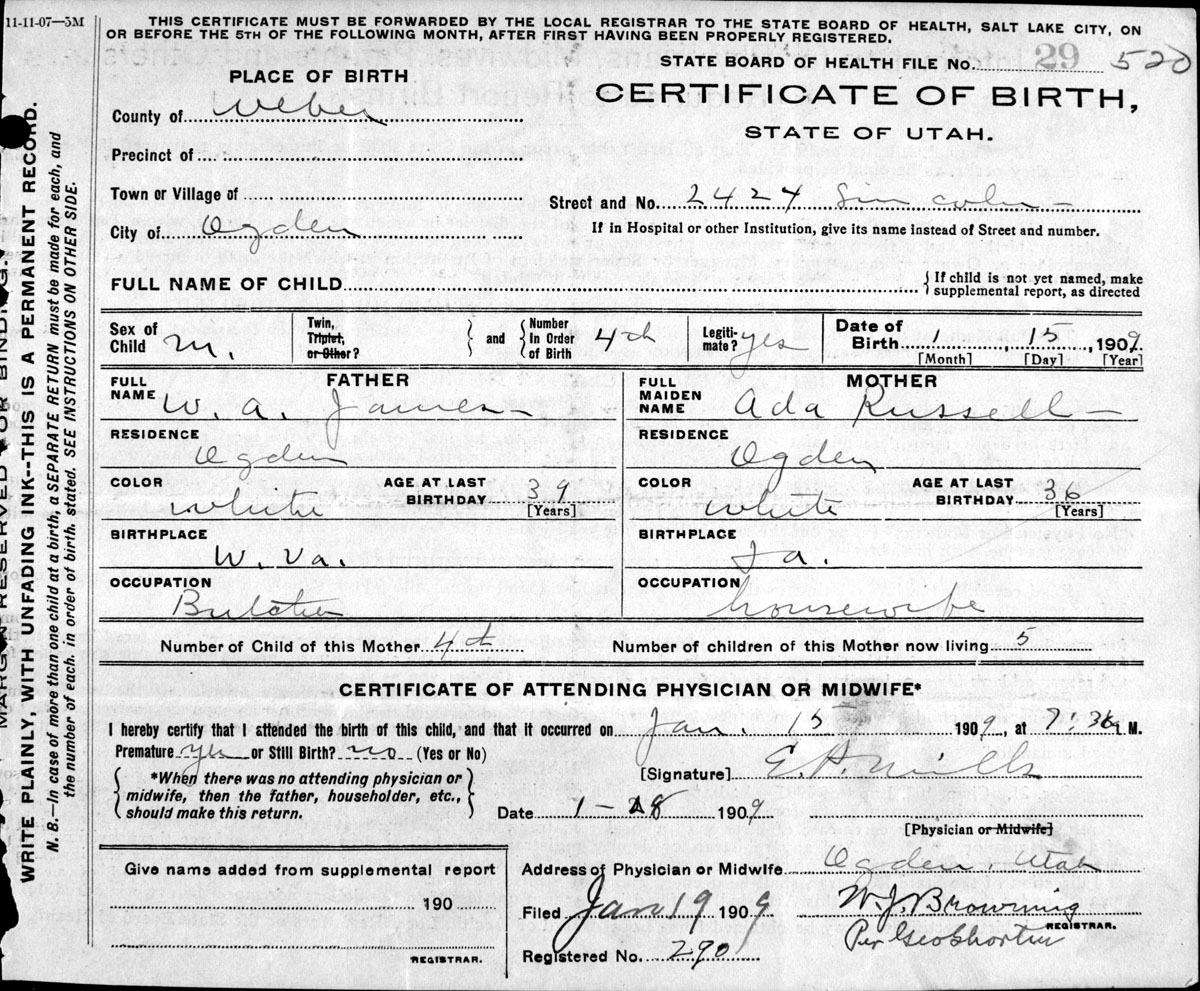 11-11-07—5M
THIS CERTIFICATE MUST BE FORWARDED BY THE LOCAL REGISTRAR TO THE STATE BOARD OF HEALTH, SALT LAKE CITY, ON
OR BEFORE THE 5TH OF THE FOLLOWING MONTH, AFTER FIRST HAVING BEEN PROPERLY REGISTERED.
STATE BOARD OF HEALTH FILE No. 29 520
PLACE OF BIRTH
CERTIFICATE OF BIRTH,
STATE OF UTAH.
County of Weber
Precinct of
Town or Village of
Street and No. 2424 Lincoln
City of Ogden
If in Hospital or other Institution, give its name instead of Street and number.
FULL NAME OF CHILD
If child is not yet named, make
supplemental report, as directed
Sex of Child m.
Twin, Triplet, or Other?
and
Number In Order of Birth 4th
Legiti-mate? yes
Date of Birth 1 15, 1909
[Month] [Day] [Year]
FATHER
FULL NAME W. A. James
RESIDENCE Ogden
COLOR White
AGE AT LAST BIRTHDAY 39
[Years]
BIRTHPLACE W. Va.
OCCUPATION Butcher
MOTHER
FULL MAIDEN NAME Ada Russell
RESIDENCE Ogden
COLOR White
AGE AT LAST BIRTHDAY 36
[Years]
BIRTHPLACE
OCCUPATION housewife
Number of Child of this Mother 4th
Number of children of this Mother now living 5
CERTIFICATE OF ATTENDING PHYSICIAN OR MIDWIFE*
I hereby certify that I attended the birth of this child, and that it occurred on Jan. 15 1909, at 7:36 M.
Premature yes or Still Birth? no (Yes or No)
*When there was no attending physician or
midwife, then the father, householder, etc.,
should make this return.
[Signature] E. P. Mills
Date 1-18 1909
[Physician or Midwife]
Give name added from supplemental report
190
REGISTRAR.
Address of Physician or Midwife Ogden, Utah
Filed Jan 19 1909
W. J. Browning
REGISTRAR.
Per Geo Shorten
Registered No. 290
MARGIN RESERVED FOR BINDING
WRITE PLAINLY, WITH UNFADING INK--THIS IS A PERMANENT RECORD.
N. B.—In case of more than one child at a birth, a SEPARATE RETURN must be made for each, and
the number of each, in order of birth, stated. SEE INSTRUCTIONS ON OTHER SIDE.